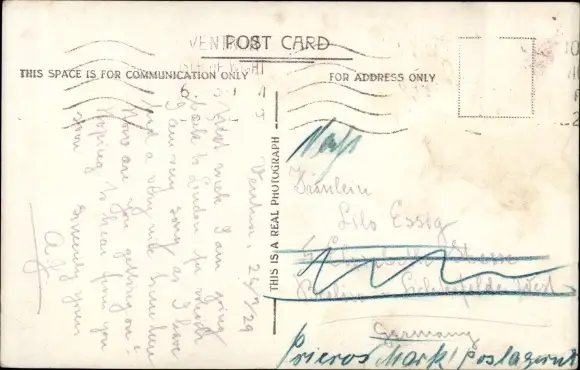 POST CARD
VENTNOR
ISLE OF WIGHT
THIS SPACE IS FOR COMMUNICATION ONLY
FOR ADDRESS ONLY
THIS IS A REAL PHOTOGRAPH
Ventnor. 
Next week I am going
back to London for which
I am very sorry as I have
had a very nice time here
How are you getting on?
Hoping to hear from you
soon Sincerely yours
Fräulein
Lilo Essig
Berlin
Germany
Prieros Mark! Postlagernd